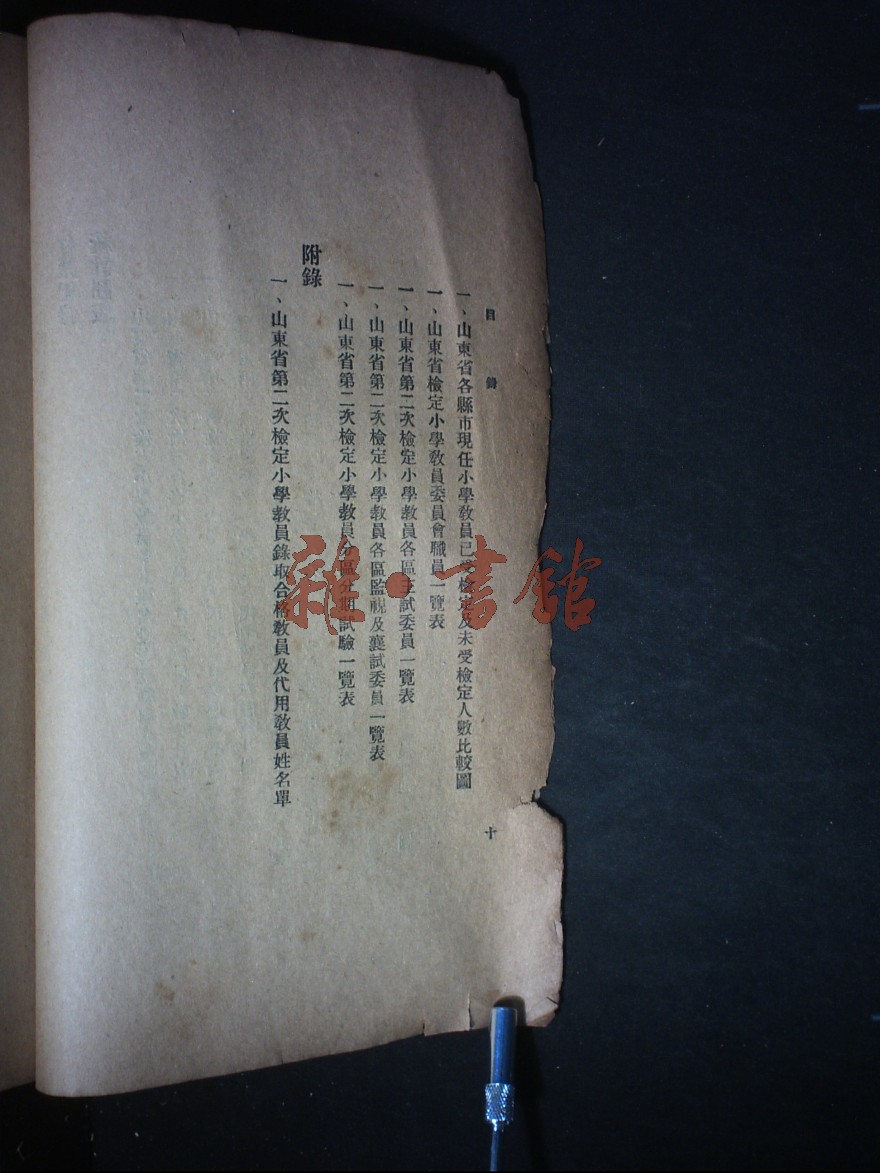 目錄
一、山東省各縣市現任小學教員已受檢定及未受檢定人數比較圖
一、山東省檢定小學教員委員會職員一覽表
一、山東省第二次檢定小學教員各區主試委員一覽表
一、山東省第二次檢定小學教員各區監視及襄試委員一覽表
一、山東省第二次檢定小學教員分區分期試驗一覽表
附錄
一、山東省第二次檢定小學教員錄取合格教員及代用教員姓名單
十
雜·書館